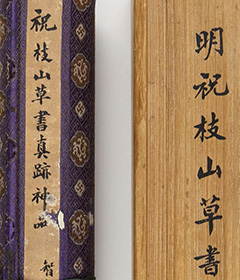 明祝枝山草書
祝枝山草書真跡神品
智